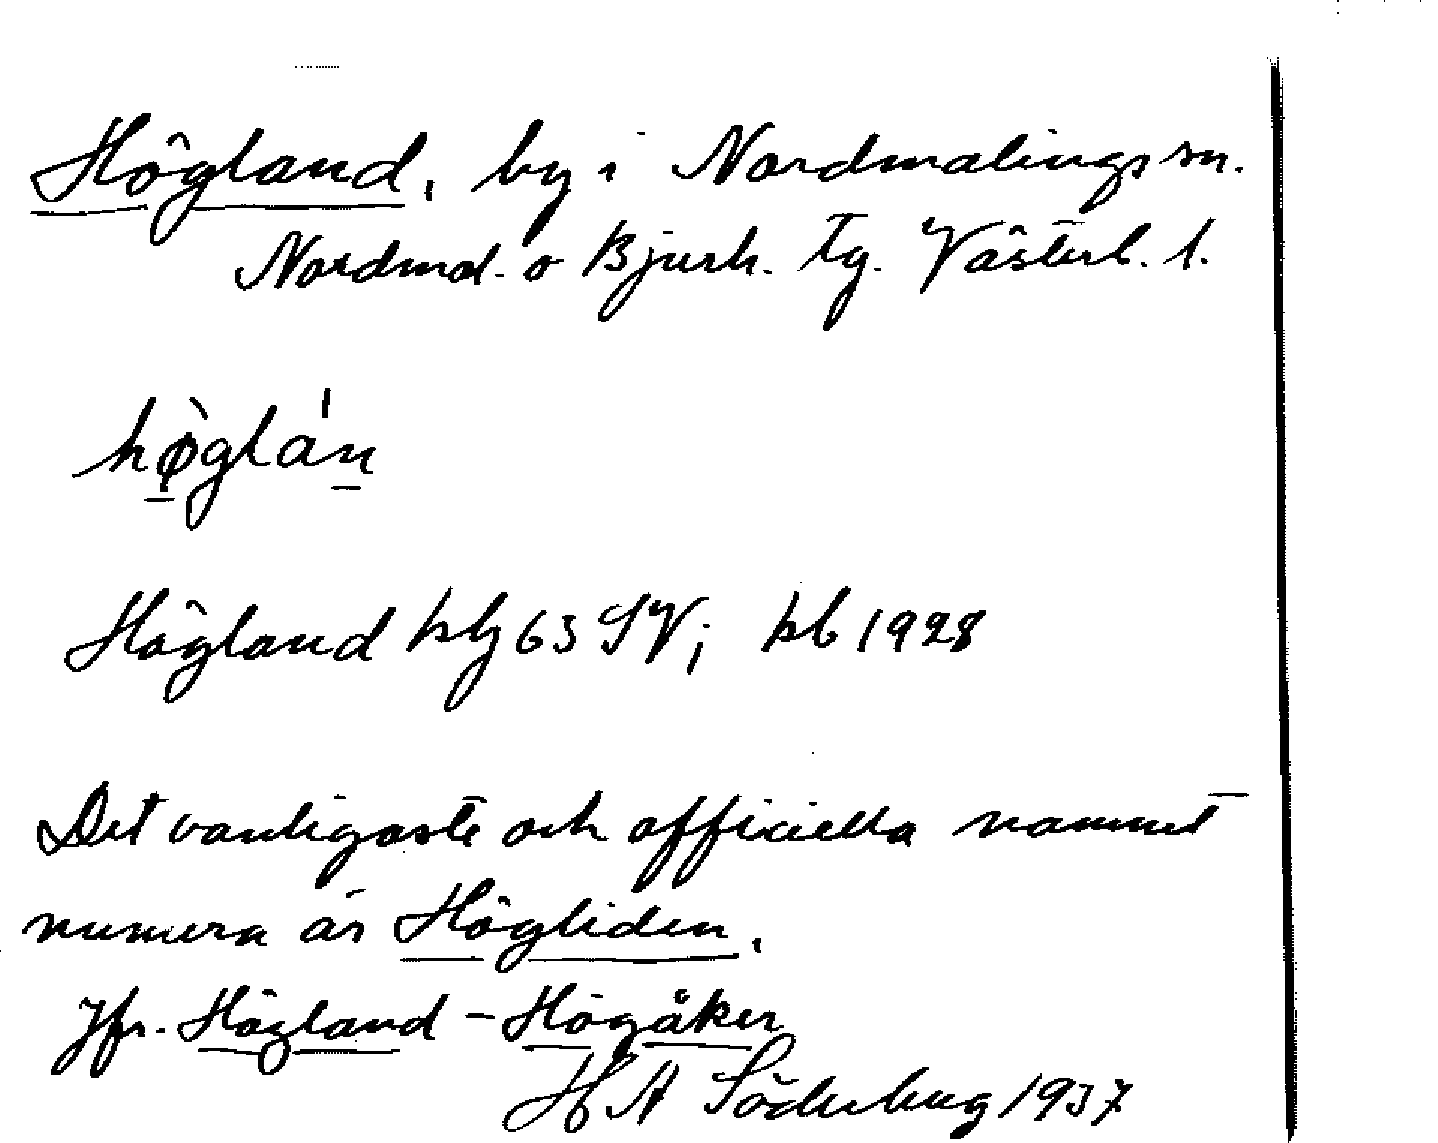 Högland, by i Nordmalings sn.
Nordmal. o Bjurh. tg. Västerb. l.
hø̀glán
Högland kbl 63 SV; kb 1928
Det vanligaste och officiella namnet
numera är Högliden.
Jfr. Högland - Högåker
H A Söderberg 1937